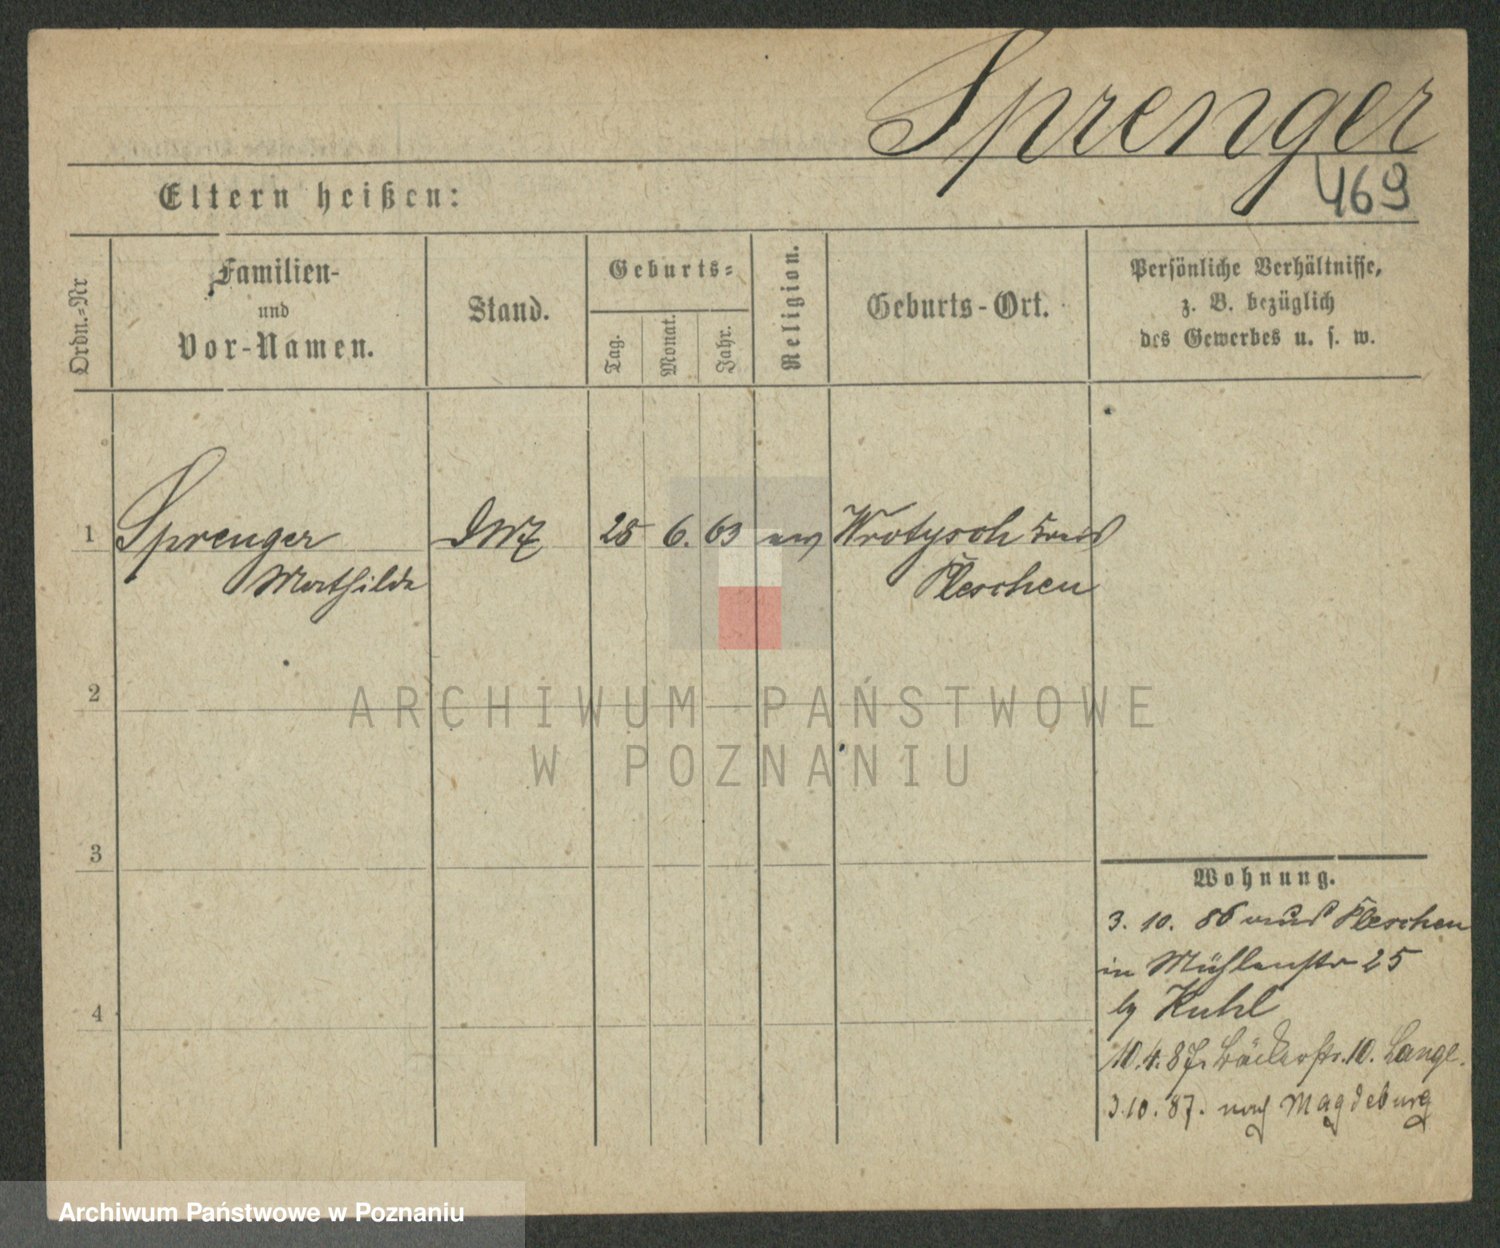 Sprenger
469
Eltern heißen:
Ordn.=Nr
Familien-
und
Vor-Namen.
Stand.
Geburts=
Tag.
Monat.
Jahr.
Religion.
Geburts-Ort.
Persönliche Verhältnisse,
z. B. bezüglich
des Gewerbes u. s. w.
1
Sprenger
Mathilde
28
6.
63
ev
Wrotysch Kreis
Pleschen
2
ARCHIWUM PAŃSTWOWE
W POZNANIU
3
Wohnung.
3. 10. 86 aus Pleschen
in Mühlenstr 25
Kuhl
4
10.4.87. Bäckerstr. 10. Lange.
3.10.87. nach Magdeburg
Archiwum Państwowe w Poznaniu